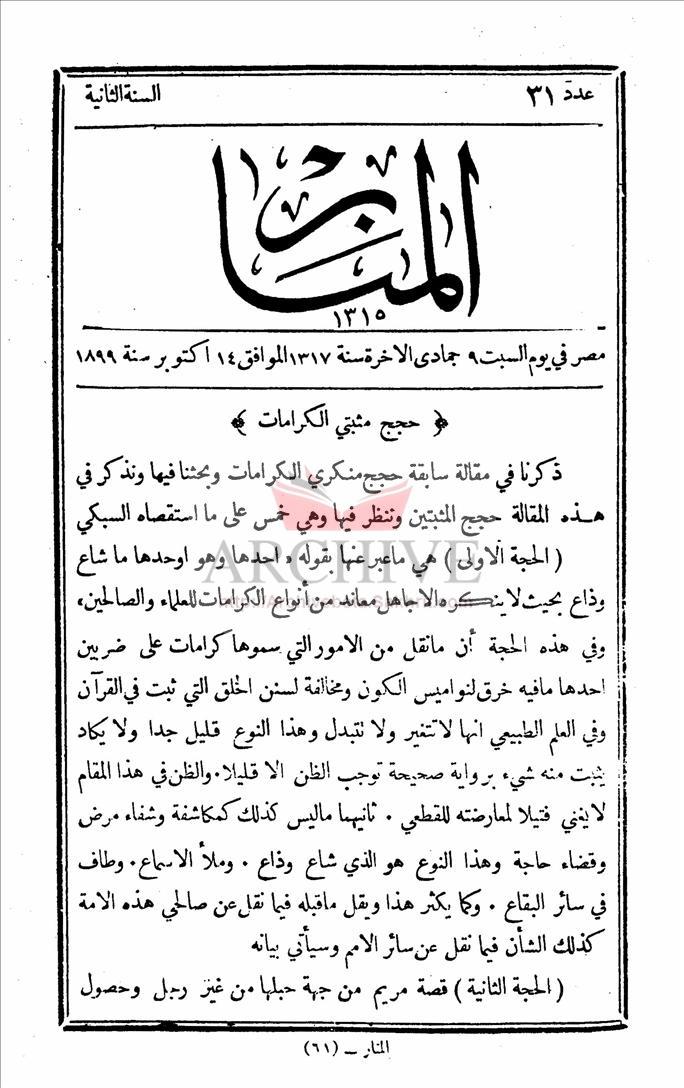 عدد ٣١
السنة الثانية
المنار
١٣١٥
مصر في يوم السبت ٩ جمادى الاخرة سنة ١٣١٧ الموافق ١٤ اكتوبر سنة ١٨٩٩
﴿ حجج مثبتي الكرامات ﴾
ذكرنا في مقالة سابقة حجج منكري الكرامات وبحثنا فيها ونذكر في
هذه المقالة حجج المثبتين وننظر فيها وهي خمس على ما استقصاه السبكي
( الحجة الاولى ) هي ماعبر عنها بقوله « احدها وهو اوحدها ما شاع
وذاع بحيث لا ينكره الا جاهل معاند من أنواع الكرامات للعلماء والصالحين،
وفي هذه الحجة أن مانقل من الامور التي سموها كرامات على ضربين
احدها مافيه خرق لنواميس الكون ومخالفة لسنن الخلق التي ثبت في القرآن
وفي العلم الطبيعي انها لا تتغير ولا تتبدل وهذا النوع قليل جدا ولا يكاد
يثبت منه شيء برواية صحيحة توجب الظن الا قليلا. والظن في هذا المقام
لا يغني فتيلا لمعارضته للقطعي . ثانيهما ماليس كذلك كمكاشفة وشفاء مرض
وقضاء حاجة وهذا النوع هو الذي شاع وذاع . وملأ الاسماع. وطاف
في سائر البقاع . وكما يكثر هذا ويقل ماقبله فيما نقل عن صالحي هذه الامة
كذلك الشأن فيما نقل عن سائر الامم وسيأتي بيانه
( الحجة الثانية ) قصة مريم من جهة حبلها من غير رجل وحصول
المنار ــ (٦١)
ARCHIVE